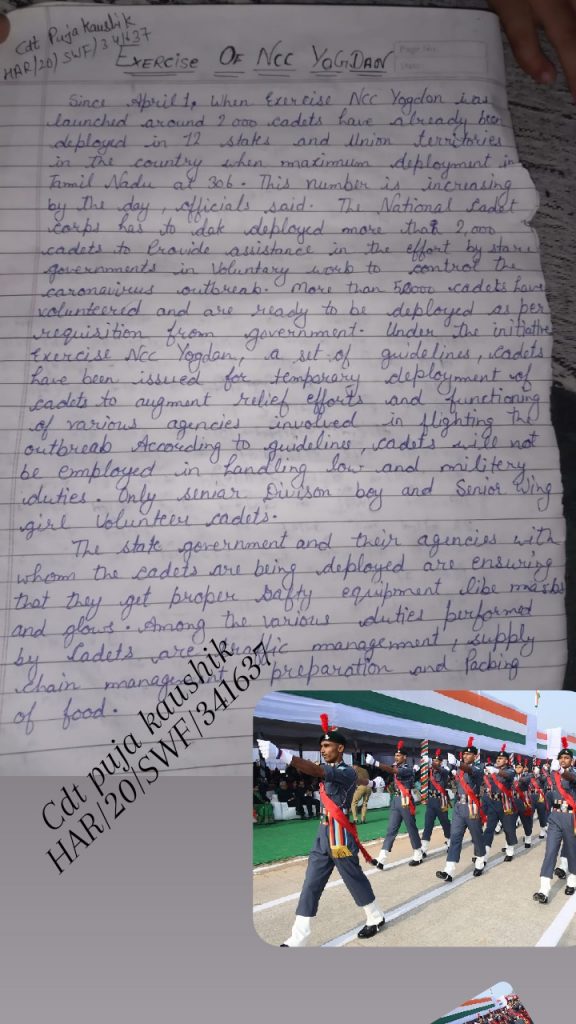 Cdt Puja Kaushik
HAR/20/SWF/341637
EXERCISE OF NCC YOGDAN
Page No.
Date
Since April 1, When Exercise Ncc Yogdan was
launched around 2000 cadets have already been
deployed in 12 states and Union territories
in the country when maximum deployment in
Tamil Nadu at 306. This number is increasing
by the day, officials said. The National Cadet
Corps has to dak deployed more than 2,000
cadets to Provide assistance in the effort by stare
governments in Voluntary work to control the
caronavirus outbreak. More than 50000 cadets have
volunteered and are ready to be deployed as per
requisition from government. Under the initiative
Exercise Ncc Yogdan, a set of guidelines, cadets
have been issued for temporary deployment of
cadets to augment relief efforts and functioning
of various agencies involved in flighting the
outbreak According to guidelines, cadets will not
be employed in handling low and militery
duties. Only seniar Divison boy and Senior Wing
girl Volunteer cadets.
The state government and their agencies with
whom the cadets are being deployed are ensuring
that they get proper safty equipment like masks
and glows. Among the various duties performed
by Cadets are traffic management, supply
chain management preparation and Packing
of food.
Cdt puja kaushik
HAR/20/SWF/341637